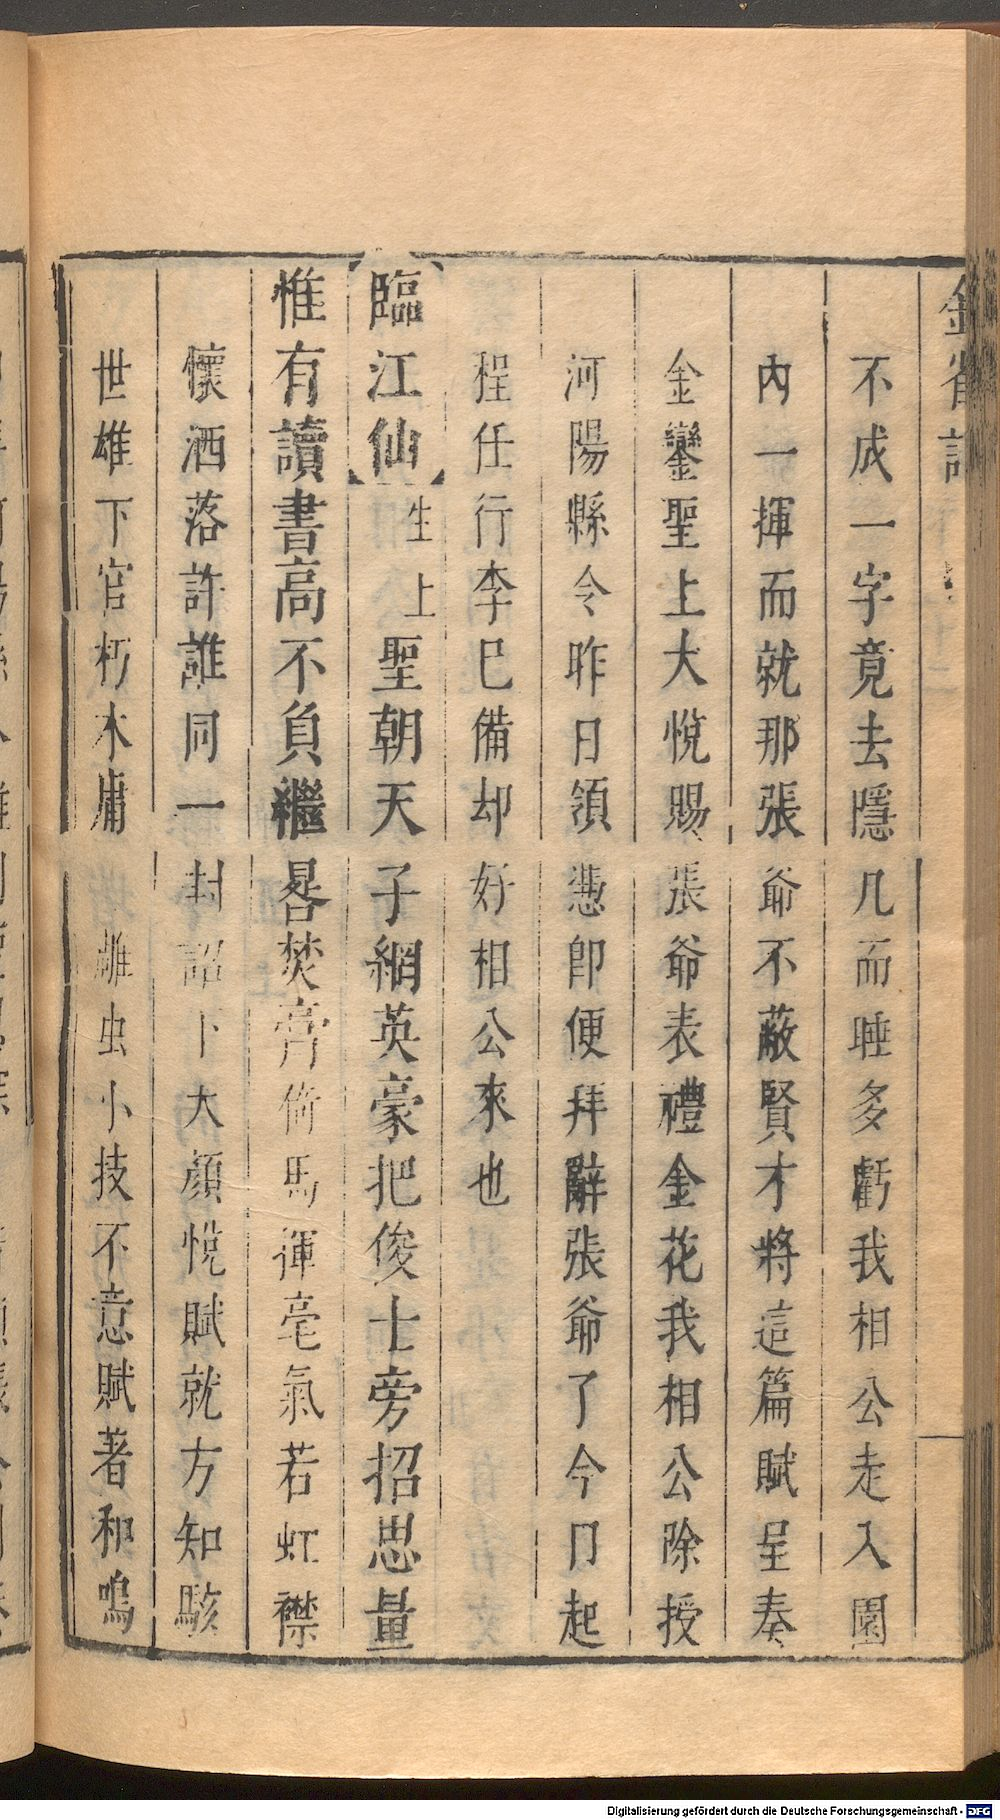 金雀記
不成一字竟去隱几而睡多虧我相公走入園
內一揮而就那張爺不蔽賢才將這篇賦呈奏
金鑾聖上大悅賜張爺表禮金花我相公除授
河陽縣令昨日領憑卽便拜辭張爺了今日起
程任行李已備却好相公來也
臨江仙生上聖朝天子網英豪把俊士旁招思量
惟有讀書高不負繼晷焚膏倚馬運毫氣若虹襟
懷洒落許誰同一封詔下大顏悅賦就方知駭
世雄下官朽木庸 雕虫小技不意賦著和鳴
Digitalisierung gefördert durch die Deutsche Forschungsgemeinschaft - DFG